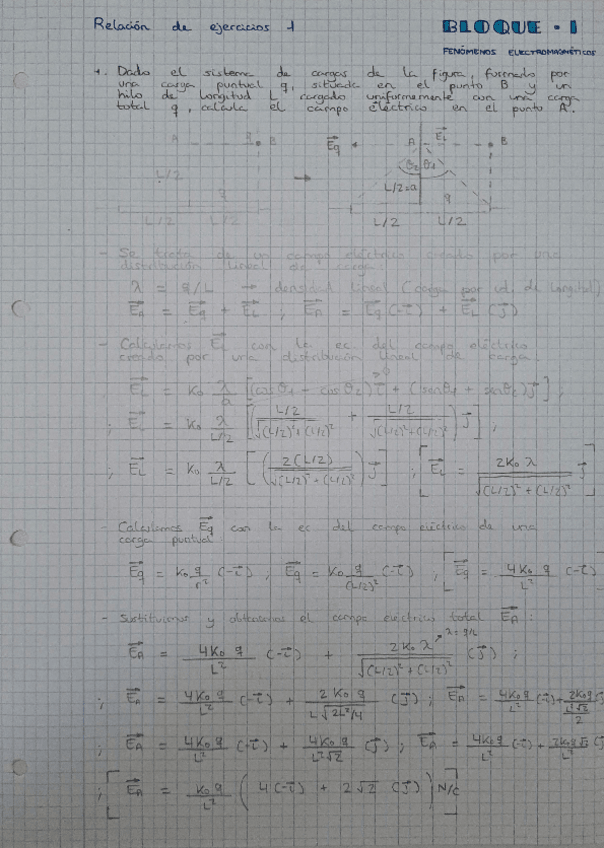 Relación de ejercicios 1
BLOQUE - I
FENÓMENOS ELECTROMAGNÉTICOS
1. Dado el sistema de cargas de la figura, formado por
una carga puntual q, situada en el punto B y un
hilo de longitud L cargado uniformemente con una carga
total q, calcula el campo eléctrico en el punto A.
A q B Eq A EL B
L/2 θ2 θ1
q L/2=a q
L/2 L/2 → L/2 L/2
- Se trata de un campo eléctrico creado por una
distribución lineal de carga
λ = q/L → densidad lineal (carga por ud. de longitud)
EA = Eq + EL ; EA = Eq (-i) + EL (j)
- Calculamos EL con la ec del campo eléctrico
creado por una distribución lineal de carga
EL = K0 λ/a [(cosθ1 - cosθ2) i + (senθ1 + senθ2) j] ;
; EL = K0 λ/(L/2) [( (L/2)/√((L/2)²+(L/2)²) + (L/2)/√((L/2)²+(L/2)²) ) j] ;
; EL = K0 λ/(L/2) [( 2(L/2)/√((L/2)²+(L/2)²) ) j] ; [EL = 2K0 λ/√((L/2)²+(L/2)²) j]
- Calculamos Eq con la ec del campo eléctrico de una
carga puntual
Eq = K0 q/r² (-i) ; Eq = K0 q/(L/2)² (-i) ; [Eq = 4K0 q/L² (-i)
- Sustituimos y obtenemos el campo eléctrico total EA :
λ=q/L
EA = 4K0 q/L² (-i) + 2K0 λ/√((L/2)²+(L/2)²) (j) ;
; EA = 4K0 q/L² (-i) + 2K0 q/(L√(2L²/4)) (j) ; EA = 4K0 q/L² (-i) + 2K0 q/(L²√2/2)
; EA = 4K0 q/L² (-i) + 4K0 q/(L²√2) (j) ; EA = 4K0 q/L² (-i) + 2K0 q√2/L² (j
; [EA = K0 q/L² (4(-i) + 2√2 (j)) N/C]